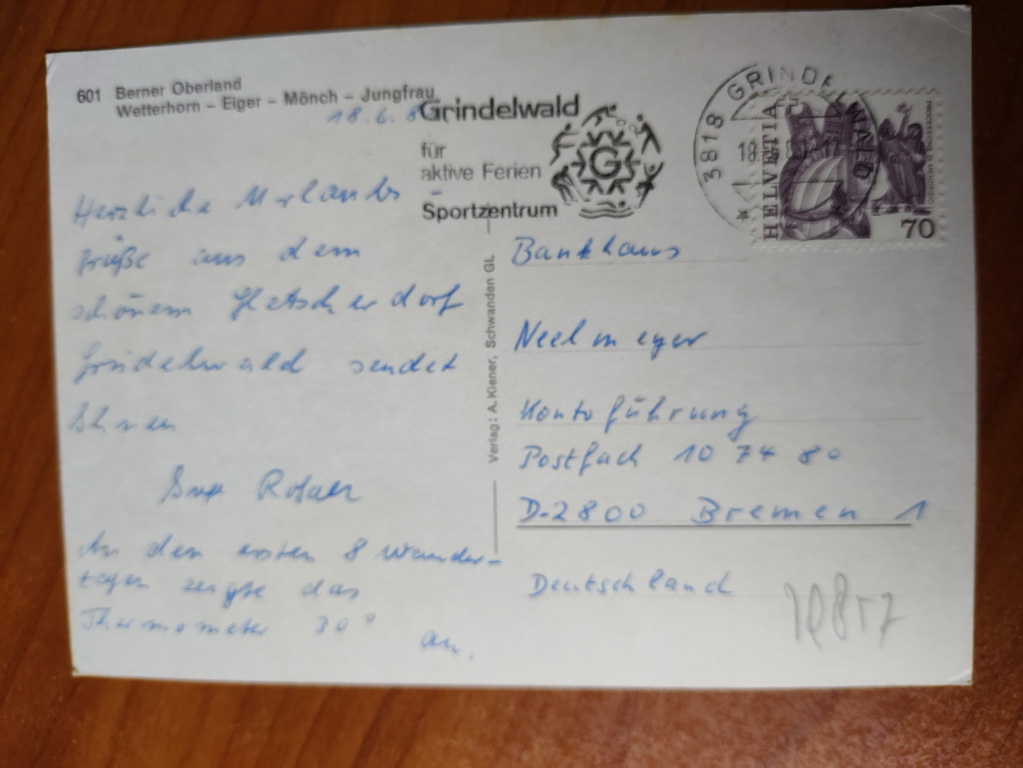 601 Berner Oberland
Wetterhorn – Eiger – Mönch – Jungfrau
18.6.
Grindelwald
für
aktive Ferien
–
Sportzentrum
3818 GRINDELWALD
HELVETIA
70
Herzliche Urlaubs
grüße aus dem
schönem Gletscherdorf
Grindelwald sendet
Ihnen
An den ersten 8 Wander-
tagen zeigte das
Thermometer 30° an.
Verlag: A. Kiener, Schwanden GL
Bankhaus
Neelmeyer
Kontoführung
Postfach 10 74 80
D-2800 Bremen 1
Deutschland